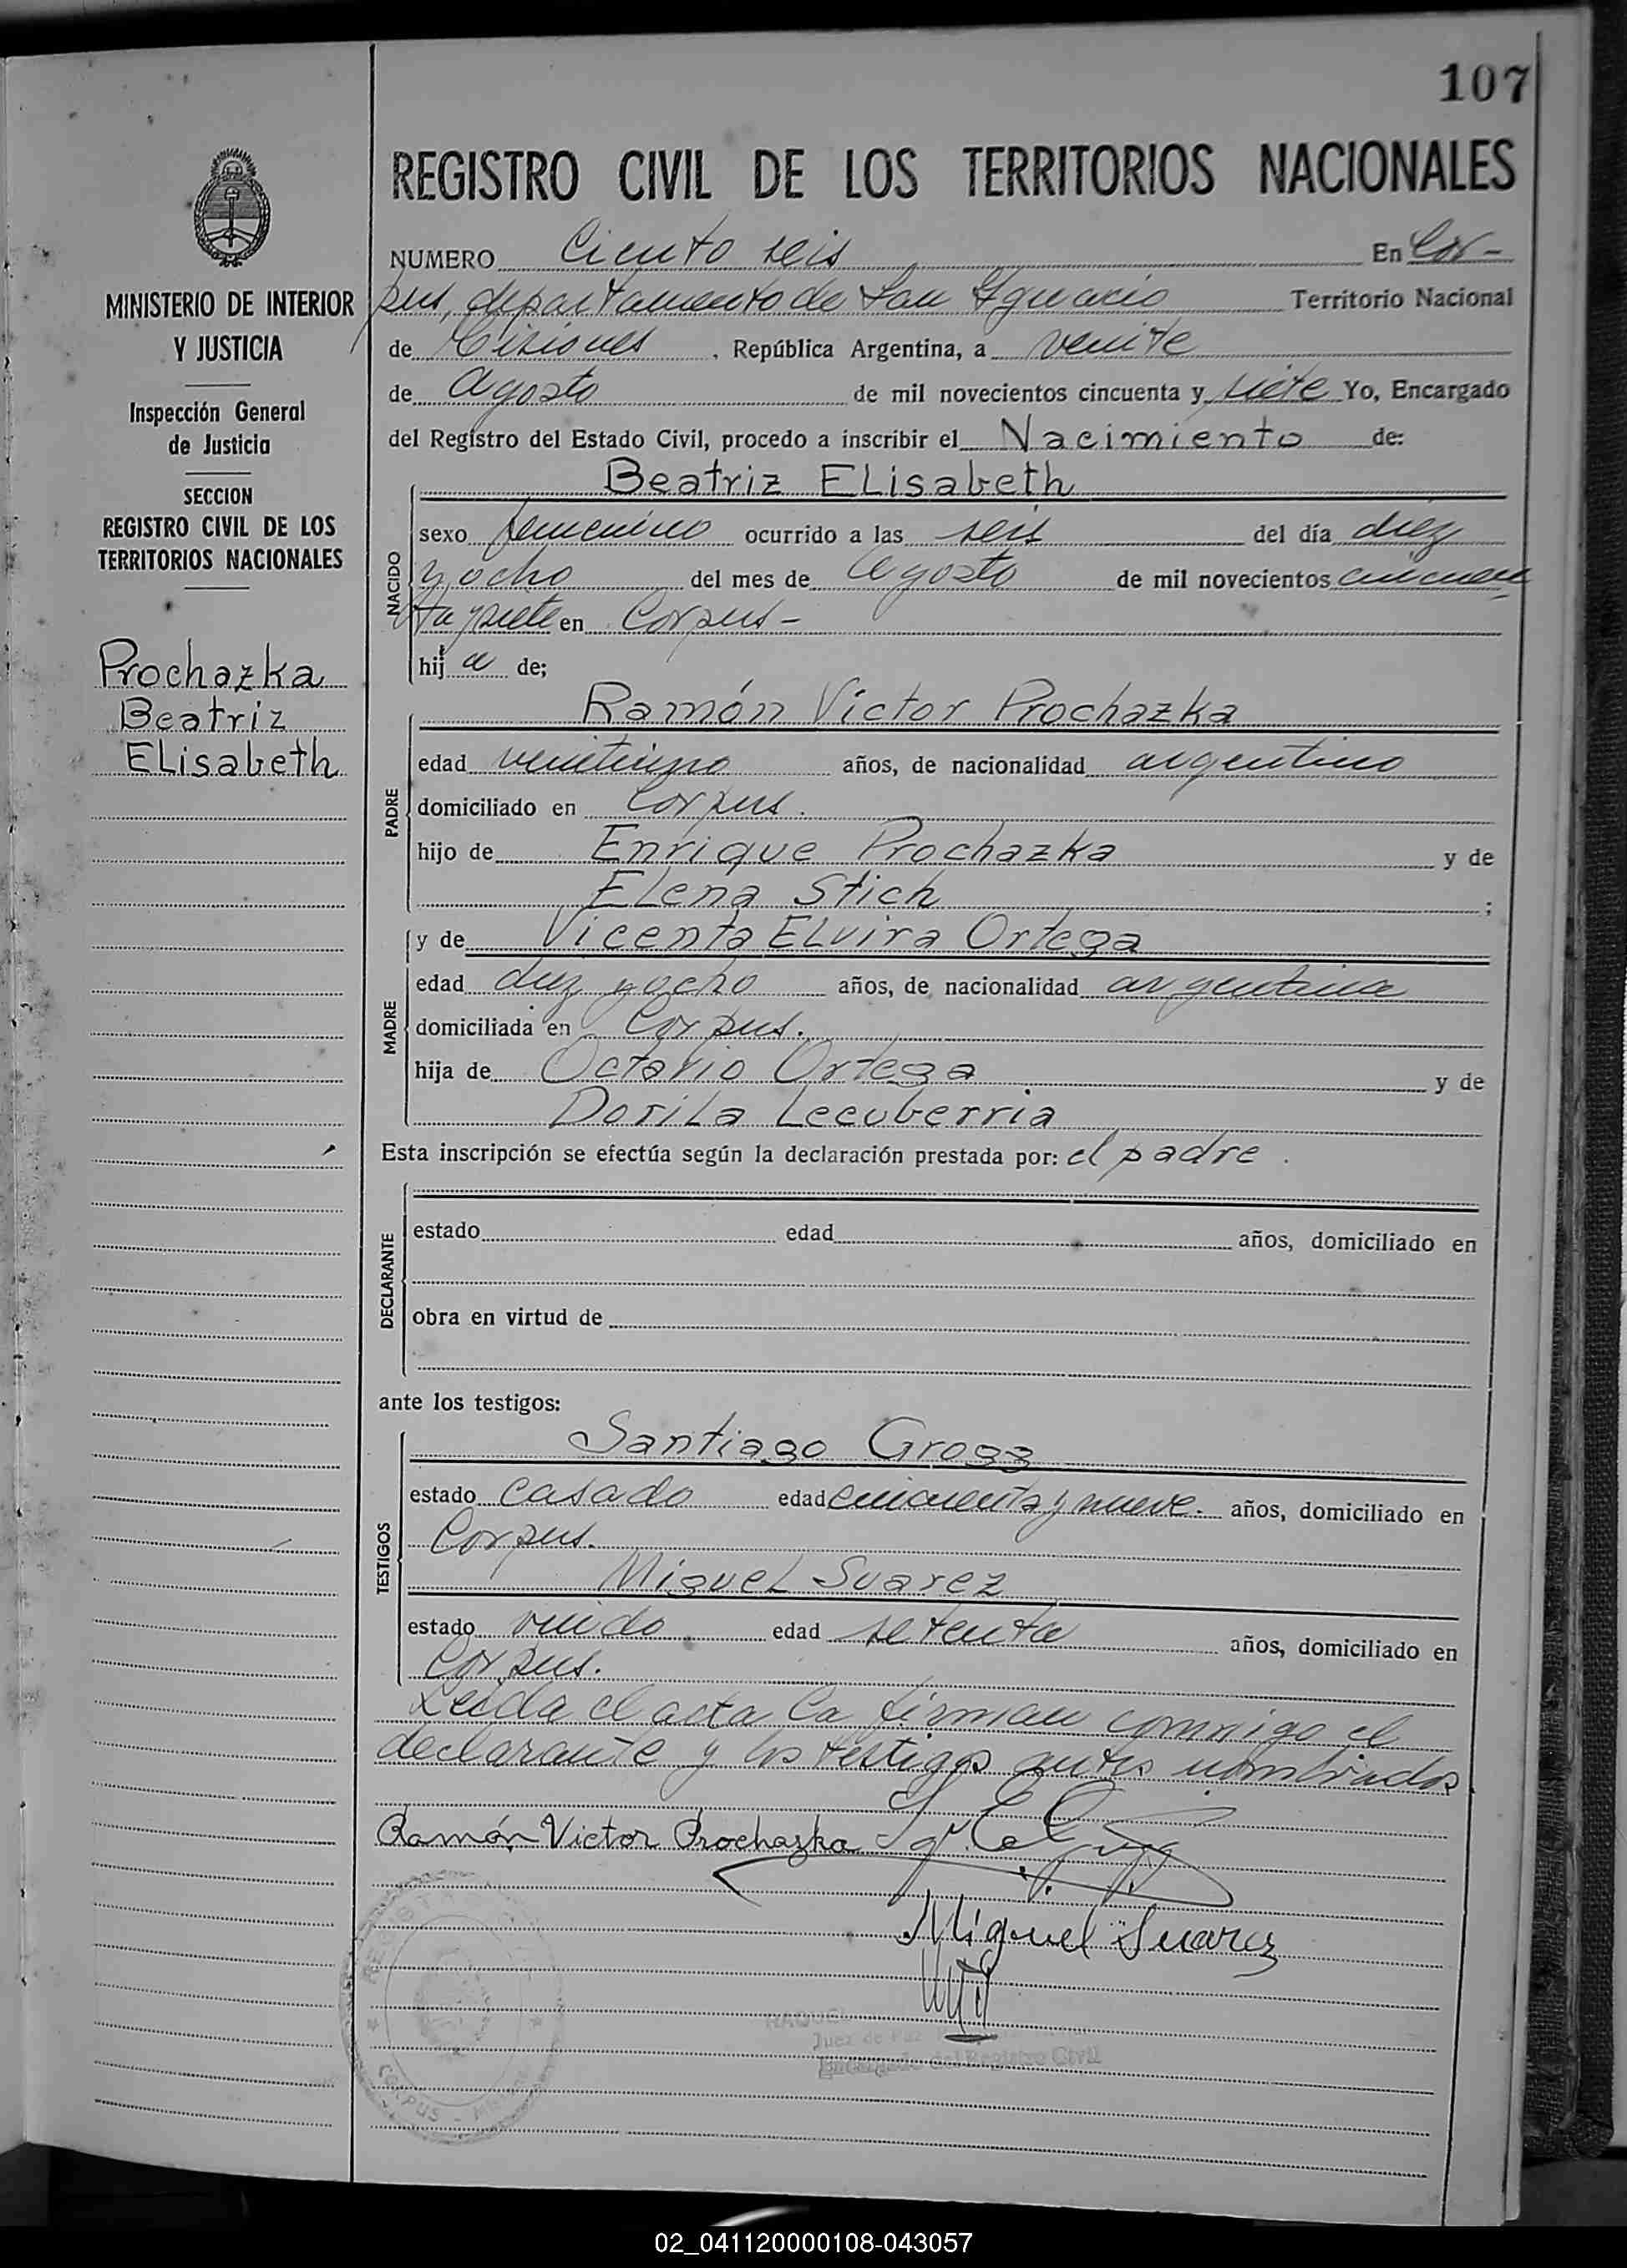 107
REGISTRO CIVIL DE LOS TERRITORIOS NACIONALES
MINISTERIO DE INTERIOR
Y JUSTICIA
Inspección General
de Justicia
SECCION
REGISTRO CIVIL DE LOS
TERRITORIOS NACIONALES
Prochazka
Beatriz
ELisabeth
NUMERO Ciento seis En Cor-
pus, departamento de San Ignacio Territorio Nacional
de Misiones, República Argentina, a veinte
de Agosto de mil novecientos cincuenta y siete Yo, Encargado
del Registro del Estado Civil, procedo a inscribir el Nacimiento de:
NACIDO
Beatriz ELisabeth
sexo femenino ocurrido a las seis del día diez
y ocho del mes de Agosto de mil novecientos cincuen
ta y siete en Corpus-
hija de;
PADRE
Ramón Victor Prochazka
edad años, de nacionalidad argentino
domiciliado en Corpus.
hijo de Enrique Prochazka y de
ELena Stich ;
MADRE
y de Vicenta ELvira Ortega
edad diez y ocho años, de nacionalidad argentina
domiciliada en Corpus.
hija de Octavio Ortega y de
DoriLa Lecuberria
Esta inscripción se efectúa según la declaración prestada por: el padre.
DECLARANTE
estado edad años, domiciliado en
obra en virtud de
ante los testigos:
TESTIGOS
Santiago Grosz
estado casado edad cincuenta y nueve. años, domiciliado en
Corpus.
MigueL Suarez
estado viudo edad setenta años, domiciliado en
Corpus.
Leida el acta la firman conmigo el
declarante y los testigos antes nombrados
Ramón Victor Prochazka
Miguel Suarez
RAQUEL
Juez de Paz
Encargado del Registro Civil
CORPUS
02_041120000108-043057